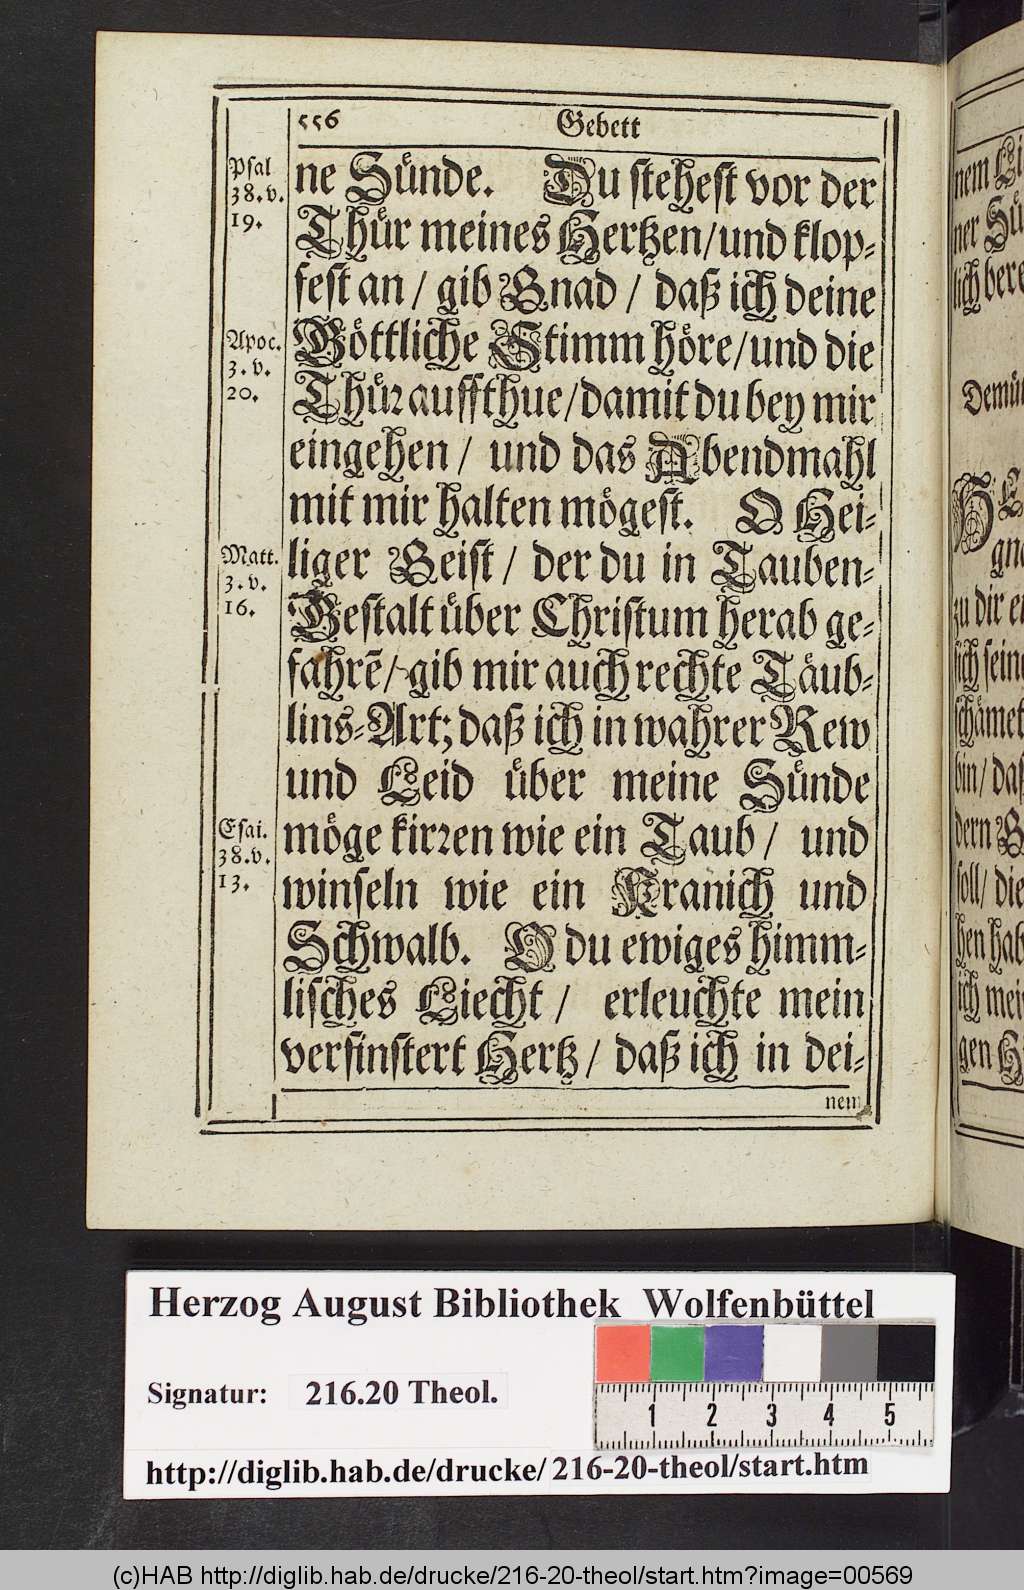 556 Gebett
Psal
38. v.
19.
ne Sünde. Du stehest vor der
Thür meines Hertzen/und klop-
fest an / gib Gnad / daß ich deine
Apoc.
3. v.
20.
Göttliche Stimm höre/und die
Thür auffthue/damit du bey mir
eingehen / und das Abendmahl
mit mir halten mögest. O Hei-
Matt.
3. v.
16.
liger Geist / der du in Tauben-
Gestalt über Christum herab ge-
fahrē/ gib mir auch rechte Täub-
lins-Art; daß ich in wahrer Rew
und Leid über meine Sünde
Esai.
38. v.
13.
möge kirren wie ein Taub / und
winseln wie ein Kranich und
Schwalb. O du ewiges himm-
lisches Liecht / erleuchte mein
verfinstert Hertz / daß ich in dei-
nem
nem
ner Sü
lich bere
Demü
gna
zu dir er
sich seine
schämet
bin / daß
dern
soll / die
hen hab
ich mei
gen
Herzog August Bibliothek Wolfenbüttel
Signatur: 216.20 Theol.
1 2 3 4 5
http://diglib.hab.de/drucke/216-20-theol/start.htm
(c)HAB http://diglib.hab.de/drucke/216-20-theol/start.htm?image=00569